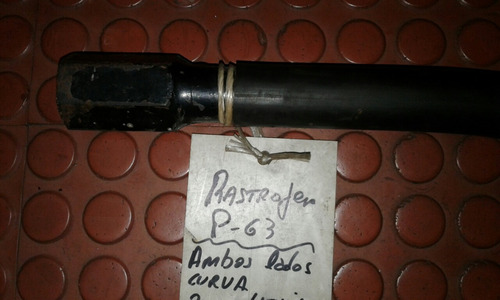 RASTROJER
P-63
AMBOS LADOS
CURVA